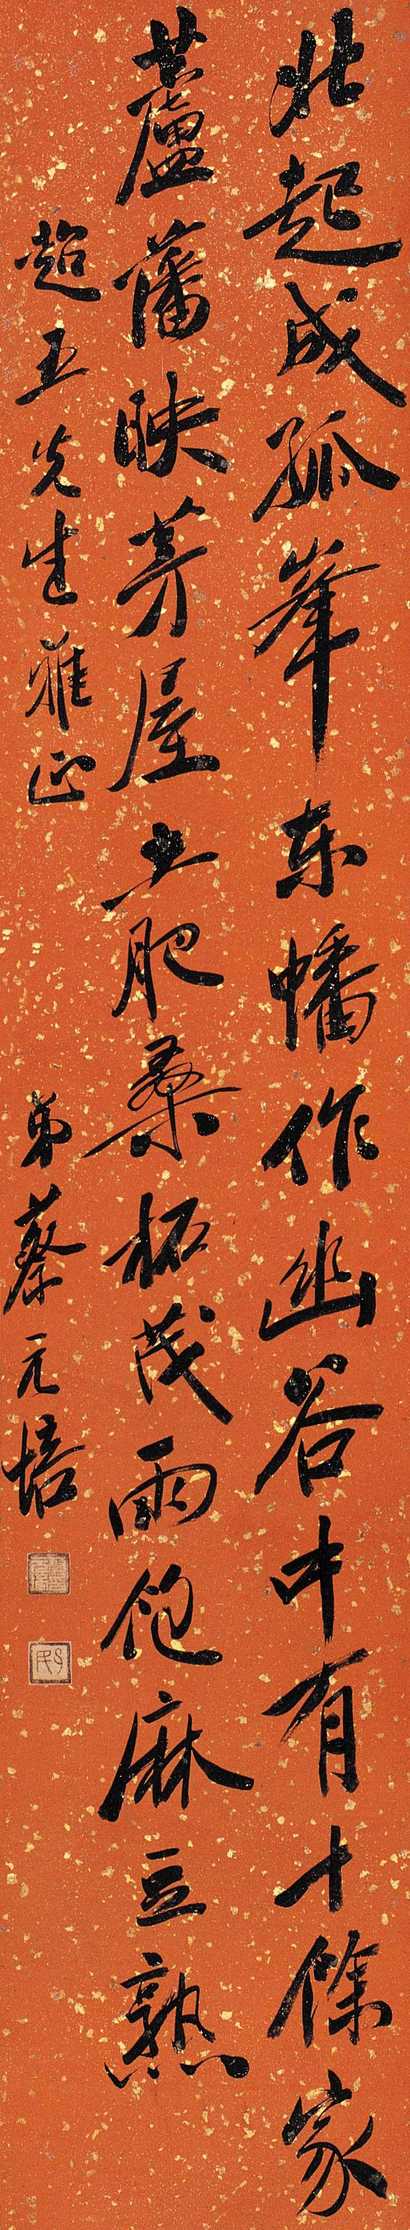 北起成孤峯東幡作幽谷中有十餘家
蘆藩映茅屋土肥桑柘茂雨飽麻豆熟
超五先生雅正
弟蔡元培